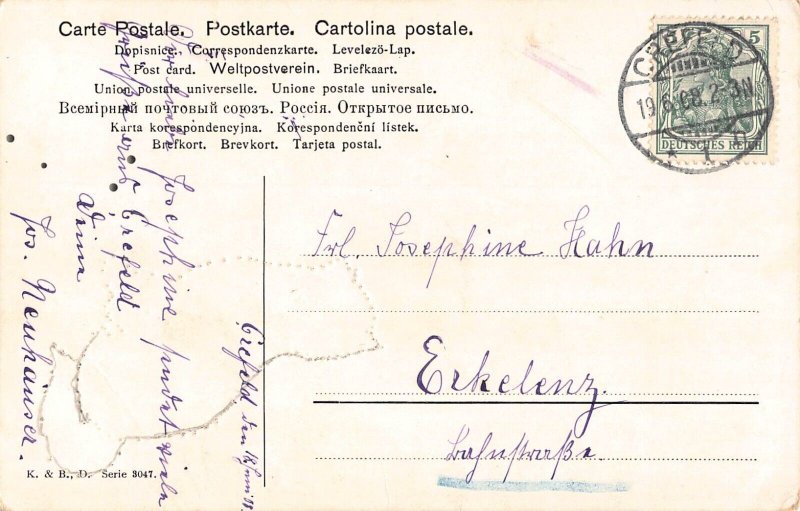 Carte Postale. Postkarte. Cartolina postale.
Dopisnice. Correspondenzkarte. Levelező-Lap.
Post card. Weltpostverein. Briefkaart.
Union postale universelle. Unione postale universale.
Всемірный почтовый союзъ. Россія. Открытое письмо.
Karta korespondencyjna. Korespondenční lístek.
Brefkort. Brevkort. Tarjeta postal.
5
DEUTSCHES REICH
CREFELD
19.6.08. 2-3N
* 1
Frl. Josephine Hahn
Erkelenz.
Bahnstraße.
Crefeld, den 18. Juni 08.
Josephine sendet viele
Grüße aus Crefeld
Deine
Jos. Neuhäuser.
K. & B., D. Serie 3047.